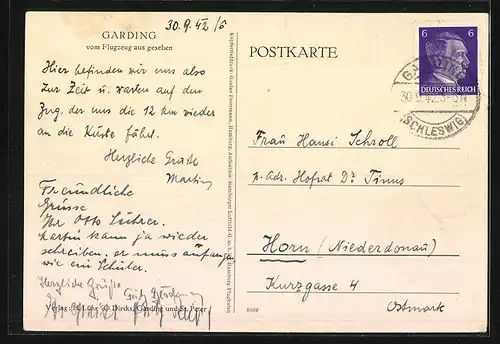 30.9.42 /6
GARDING
vom Flugzeug aus gesehen
Hier befinden wir uns also
zur Zeit u. warten auf den
Zug, der uns die 12 km wieder
an die Küste führt.
Herzliche Grüße
Martin
Freundliche
Grüsse
Ihr Otto
kann ja wieder
schreiben, er muss anfangen
wie ein Schüler.
Herzliche Grüße
Fritz
Verlag: H. Lühr & Dircks, Garding und St. Peter
Kupfertiefdruck: Gustav Petermann, Hamburg, Aufnahme: Hamburger Luftbild G. m. b. H. Hamburg-Flughafen
POSTKARTE
6 6
DEUTSCHES REICH
GARDING
30.9.42
(SCHLESWIG)
Frau Hansi Schroll
p. Adr. Hofrat Dr Tinus
Horn (Niederdonau)
Kurzgasse 4
Ostmark